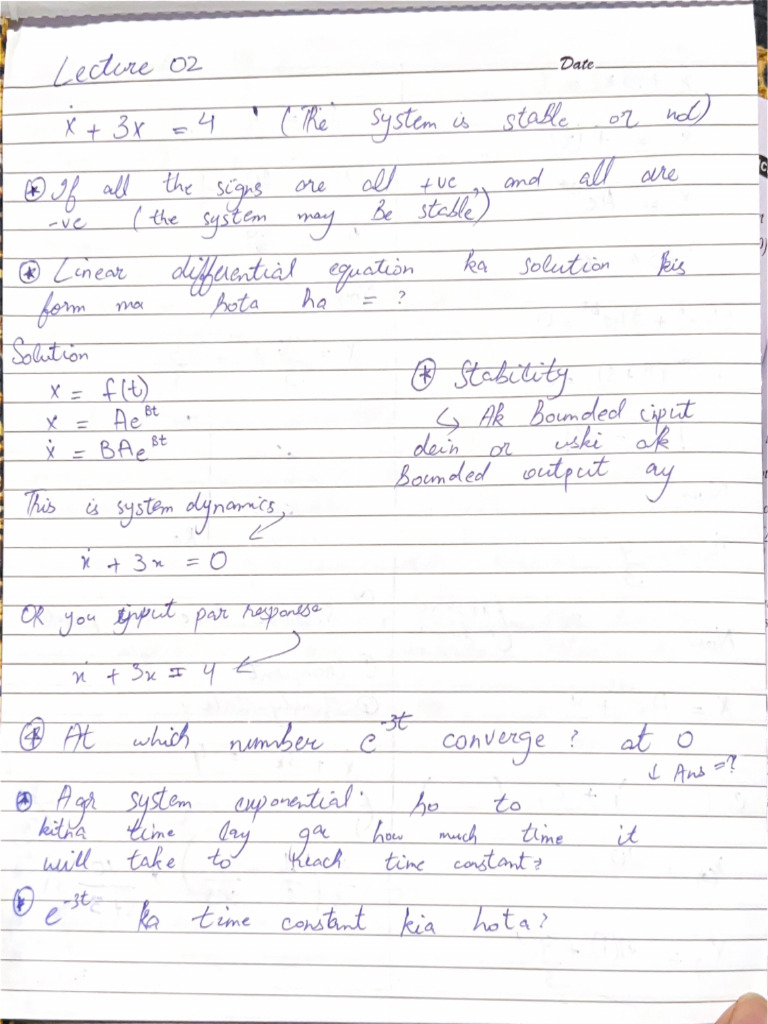 Lecture 02
Date
ẋ + 3x = 4 (The system is stable or not)
⊛ If all the signs are all +ve, and all are
-ve (the system may Be stable)
⊛ Linear differential equation ka solution kis
form ma hota ha = ?
Solution
x = f(t)
x = Ae^Bt
ẋ = BAe^Bt
⊛ Stability
↳ Ak Bounded input
dein or uski ak
Bounded output ay
This is system dynamics
ẋ + 3x = 0
OR you input par response
ẋ + 3x = 4
⊛ At which number e^-3t converge? at 0
↓ Ans=?
⊛ Agr system exponential ho to
kitna time lay ga how much time it
will take to reach time constant?
⊛ e^-3t ka time constant kia hota?